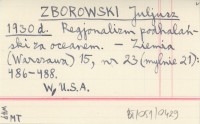 ZBOROWSKI Juljusz
1930 d. Regjonalizm podhalań-
ski za oceanem. – Ziemia
(Warszawa) 15, nr 23 (mylnie 21):
486-488.
W U.S.A.
MT